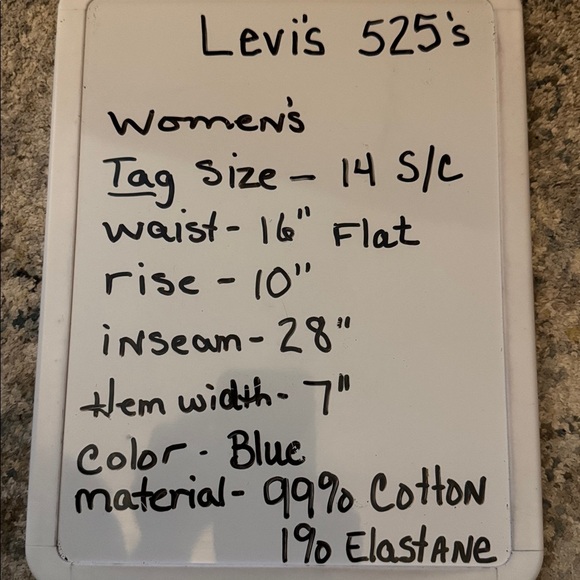 Levi's 525's
Women's
Tag Size - 14 S/C
waist - 16" Flat
rise - 10"
inseam - 28"
Hem width - 7"
Color - Blue
material - 99% Cotton
1% Elastane